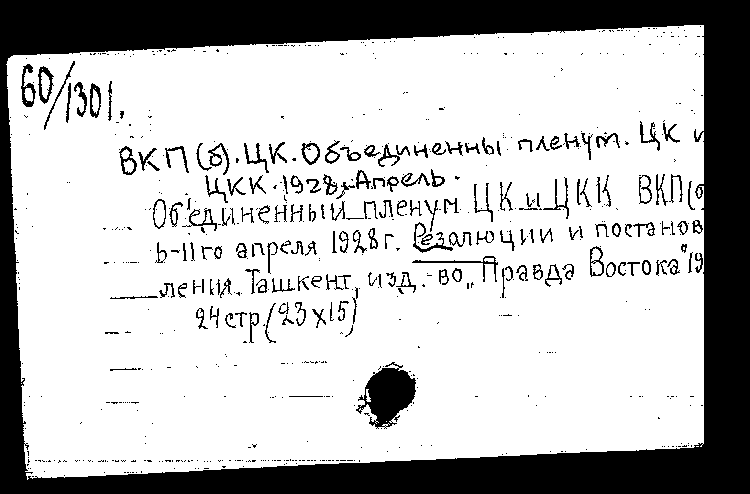 60/1301.
ВКП(б). ЦК. Объединенны пленум. ЦК и
ЦКК. 1928, Апрель.
Об'единенный пленум ЦК и ЦКК ВКП(б
6-11го апреля 1928 г. Резолюции и постанов
ления. Ташкент, изд.-во „Правда Востока" 19
24 стр. (23х15)